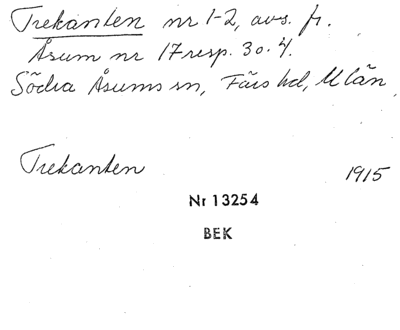 Trekanten nr 1-2, avs. fr.
Åsum nr 17 resp. 30.4.
Södra Åsums sn, Färs hd, M län
Trekanten 1915
Nr 13254
BEK